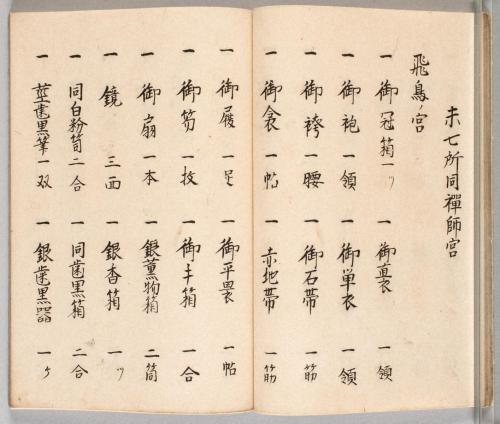 末七所同禅師宮
飛鳥宮
一 御冠箱一ツ 一 御直衣 一領
一 御袍 一領 一 御単衣 一領
一 御袴 一腰 一 御石帯 一筋
一 御衾 一帖 一 赤地帯 一筋
一 御履 一足 一 御平畏 一帖
一 御笏 一枚 一 御手箱 一合
一 御扇 一本 一 銀薫物箱 二筒
一 鏡 三面 一 銀香箱 一ツ
一 同白粉筒 二合 一 同歯黒箱 二合
一 歯黒筆 一双 一 銀歯黒器 一ケ